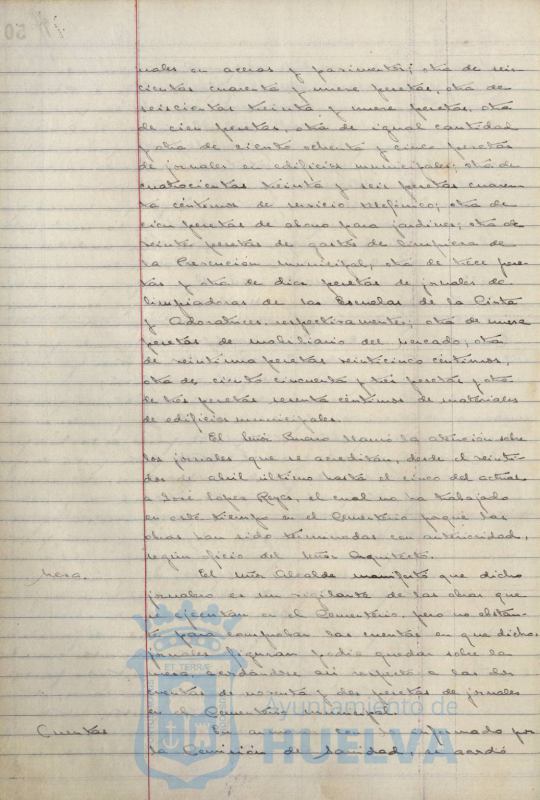 nales en aceras y pavimentos; otra de seis
cientas cuarenta y nueve pesetas, otra de
seiscientas treinta y nueve pesetas, otra
de cien pesetas, otra de igual cantidad
y otra de ciento ochenta y cinco pesetas
de jornales en edificios municipales; otra de
cuatrocientas treinta y seis pesetas cuaren-
ta céntimos de servicio telefónico; otra de
cien pesetas de abono para jardines; otra de
veinte pesetas de gastos de limpieza de
la Prevención municipal; otra de trece pese-
tas y otra de diez pesetas de jornales de
limpiadoras de las Escuelas de la Cinta
y Adoratrices, respectivamente; otra de nueve
pesetas de mobiliario del mercado; otra
de veintiuna pesetas veinticinco céntimos,
otra de ciento cincuenta y tres pesetas y otra
de tres pesetas sesenta céntimos de materiales
de edificios municipales.
El Señor Bueno llamó la atención sobre
los jornales que se acreditan, desde el veinti-
dos de abril último hasta el cinco del actual
a José López Reyes, el cual no ha trabajado
en este tiempo en el Cementerio porque las
obras han sido terminadas con anterioridad,
según oficio del Señor Arquitecto.
Mesa.
El Señor Alcalde manifestó que dicho
jornalero es un vigilante de las obras que
se ejecutan en el Cementerio, pero no obstan-
te para comprobar las cuentas en que dichos
jornales figuran podía quedar sobre la
mesa, acordándose así respecto a las dos
cuentas de noventa y dos pesetas de jornales
en el Cementerio municipal.
Cuentas
En armonía con lo informado por
la Comisión de Sanidad, se acordó
ET TERRÆ
Ayuntamiento de
HUELVA